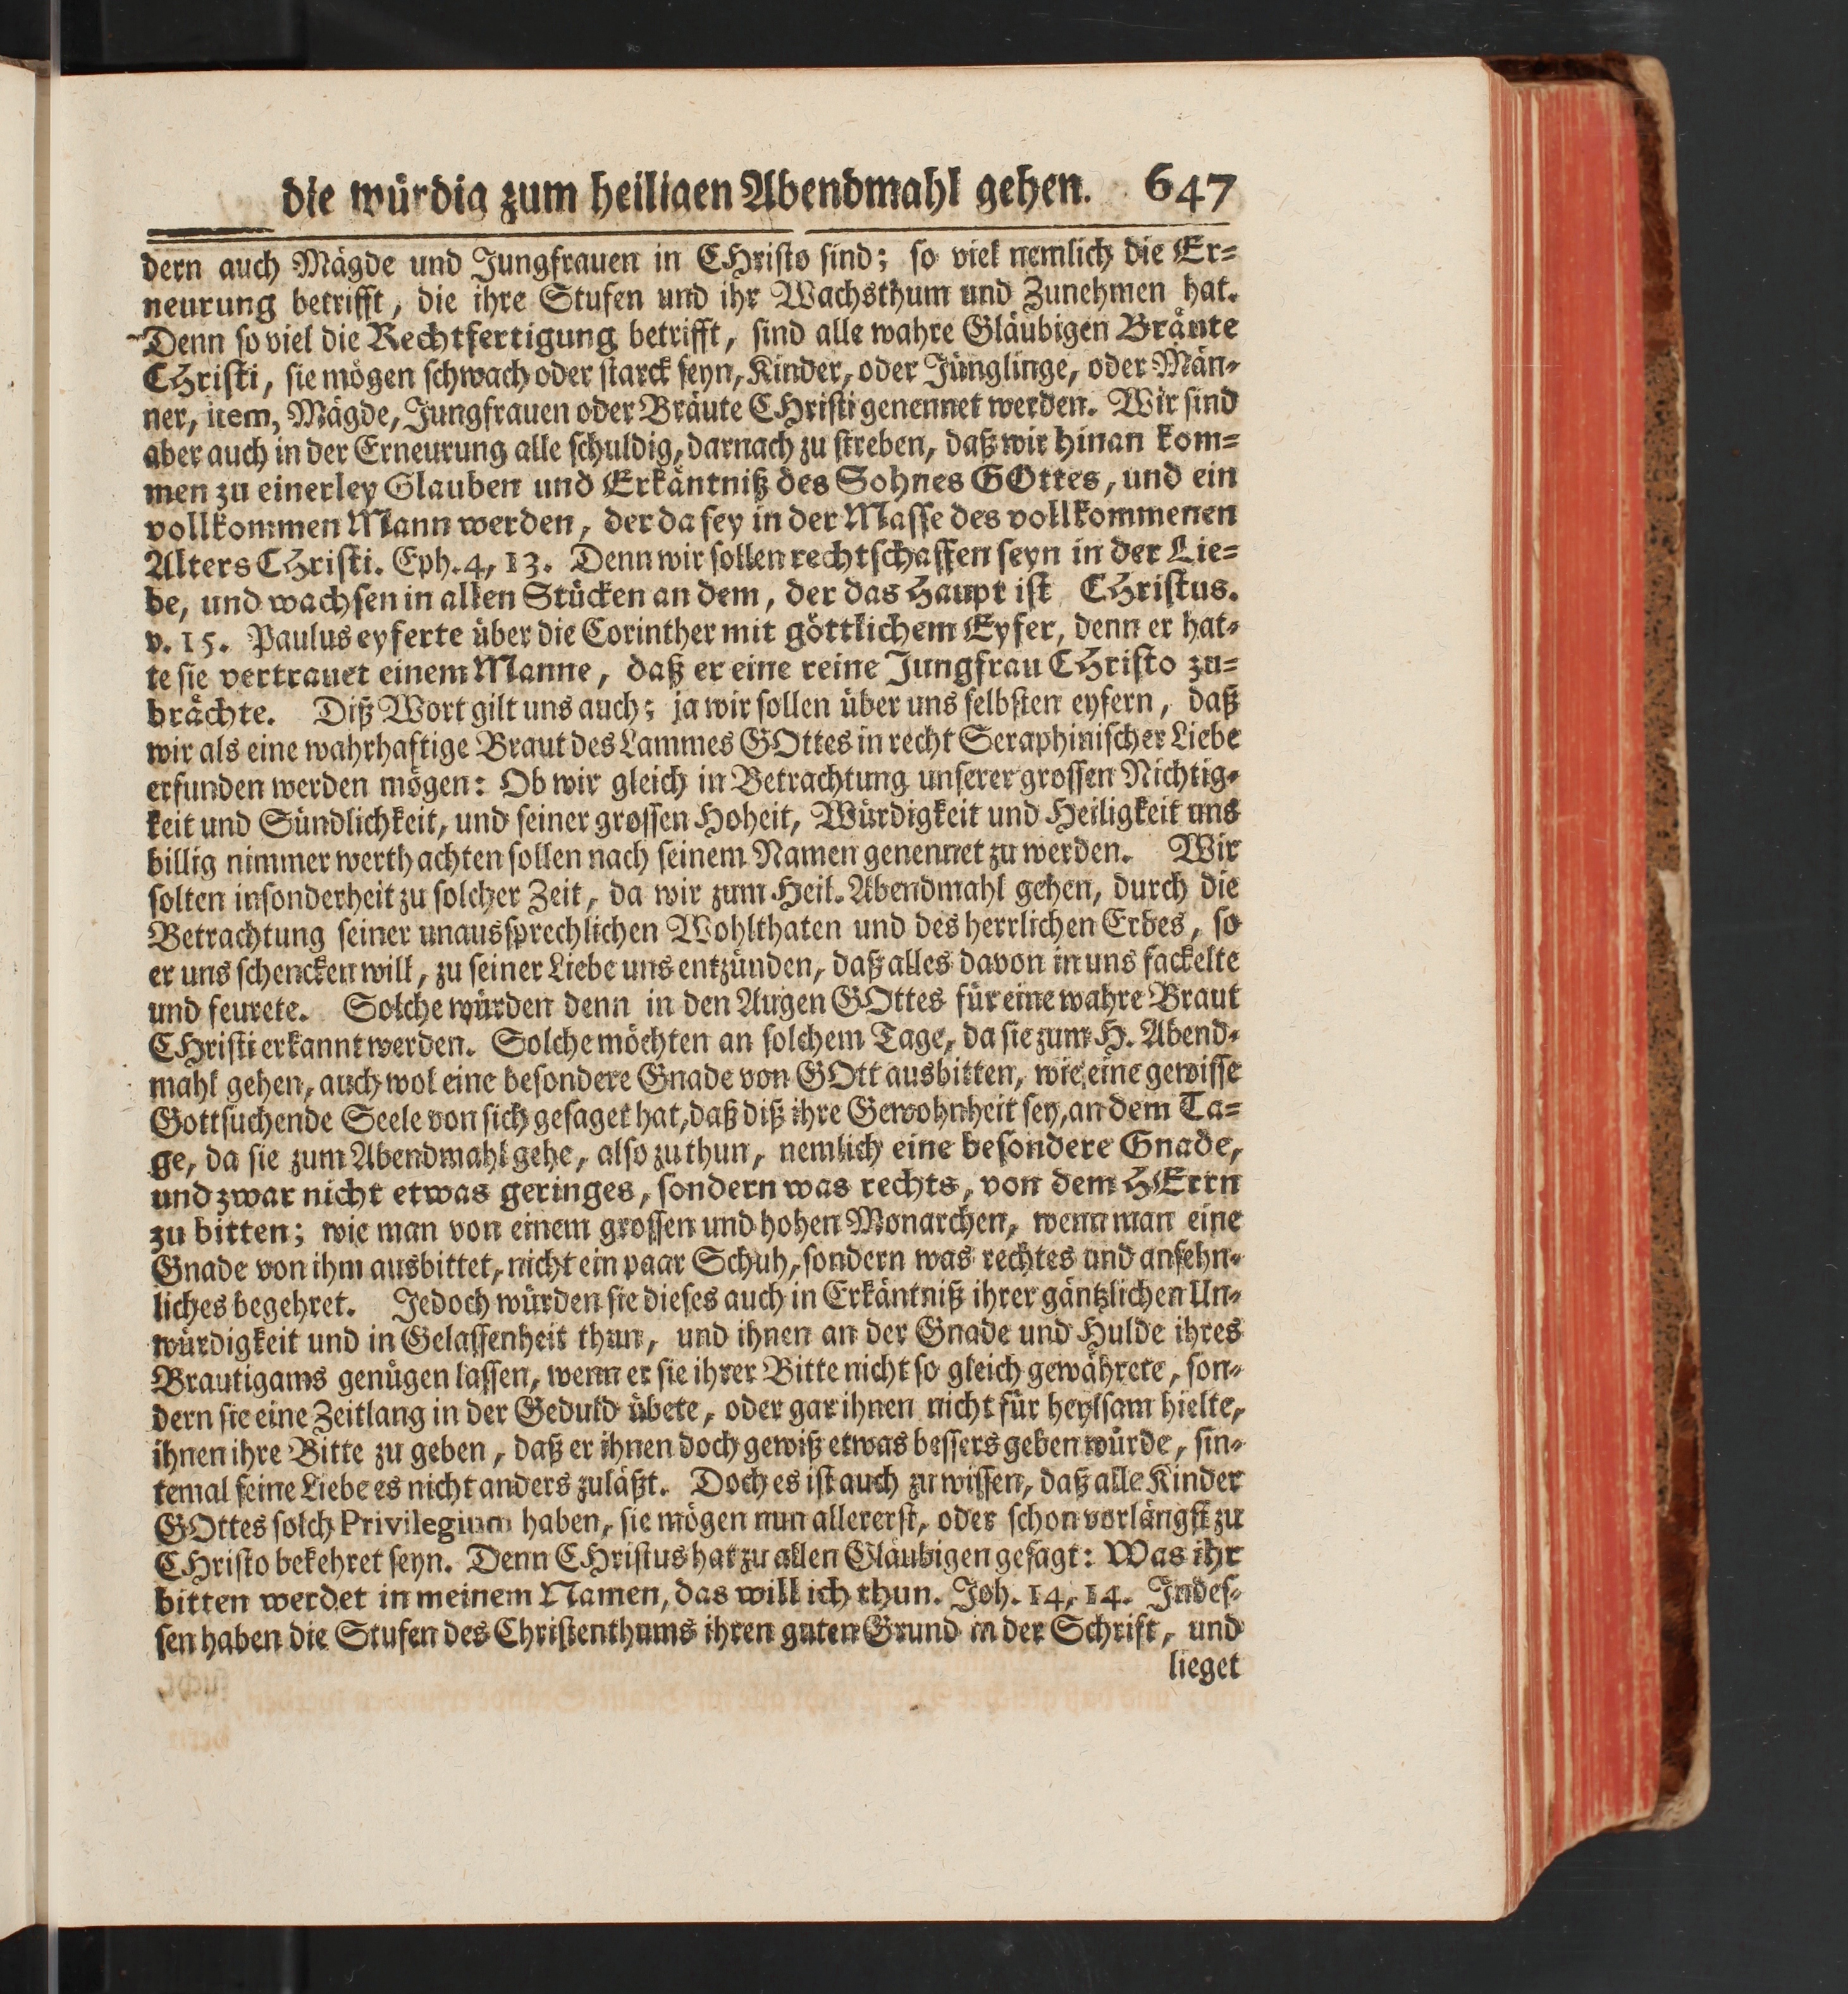 die würdig zum heiligen Abendmahl gehen. 647
dern auch Mägde und Jungfrauen in CHristo sind; so viel nemlich die Er=
neurung betrifft, die ihre Stufen und ihr Wachsthum und Zunehmen hat.
Denn so viel die Rechtfertigung betrifft, sind alle wahre Gläubigen Bräute
CHristi, sie mögen schwach oder starck seyn, Kinder, oder Jünglinge, oder Män=
ner, item, Mägde, Jungfrauen oder Bräute CHristi genennet werden. Wir sind
aber auch in der Erneurung alle schuldig, darnach zu streben, daß wir hinan kom=
men zu einerley Glauben und Erkäntniß des Sohnes GOttes, und ein
vollkommen Mann werden, der da sey in der Masse des vollkommenen
Alters CHristi. Eph. 4, 13. Denn wir sollen rechtschaffen seyn in der Lie=
be, und wachsen in allen Stücken an dem, der das Haupt ist CHristus.
v. 15. Paulus eyferte über die Corinther mit göttlichem Eyfer, denn er hat=
te sie vertrauet einem Manne, daß er eine reine Jungfrau CHristo zu=
brächte. Diß Wort gilt uns auch; ja wir sollen über uns selbsten eyfern, daß
wir als eine wahrhaftige Braut des Lammes GOttes in recht Seraphinischer Liebe
erfunden werden mögen: Ob wir gleich in Betrachtung unserer grossen Nichtig=
keit und Sündlichkeit, und seiner grossen Hoheit, Würdigkeit und Heiligkeit uns
billig nimmer werth achten sollen nach seinem Namen genennet zu werden. Wir
solten insonderheit zu solcher Zeit, da wir zum Heil. Abendmahl gehen, durch die
Betrachtung seiner unaussprechlichen Wohlthaten und des herrlichen Erbes, so
er uns schencken will, zu seiner Liebe uns entzünden, daß alles davon in uns fackelte
und feurete. Solche würden denn in den Augen GOttes für eine wahre Braut
CHristi erkannt werden. Solche möchten an solchem Tage, da sie zum H. Abend=
mahl gehen, auch wol eine besondere Gnade von GOtt ausbitten, wie eine gewisse
Gottsuchende Seele von sich gesaget hat, daß diß ihre Gewohnheit sey, an dem Ta=
ge, da sie zum Abendmahl gehe, also zu thun, nemlich eine besondere Gnade,
und zwar nicht etwas geringes, sondern was rechts, von dem HErrn
zu bitten; wie man von einem grossen und hohen Monarchen, wenn man eine
Gnade von ihm ausbittet, nicht ein paar Schuh, sondern was rechtes und ansehn=
liches begehret. Jedoch würden sie dieses auch in Erkäntniß ihrer gäntzlichen Un=
würdigkeit und in Gelassenheit thun, und ihnen an der Gnade und Hulde ihres
Brautigams genügen lassen, wenn er sie ihrer Bitte nicht so gleich gewährete, son=
dern sie eine Zeitlang in der Geduld übete, oder gar ihnen nicht für heylsam hielte,
ihnen ihre Bitte zu geben, daß er ihnen doch gewiß etwas bessers geben würde, sin=
temal seine Liebe es nicht anders zuläßt. Doch es ist auch zu wissen, daß alle Kinder
GOttes solch Privilegium haben, sie mögen nun allererst, oder schon vorlängst zu
CHristo bekehret seyn. Denn CHristus hat zu allen Gläubigen gesagt: Was ihr
bitten werdet in meinem Namen, das will ich thun. Joh. 14, 14. Indes=
sen haben die Stufen des Christenthums ihren guten Grund in der Schrift, und
lieget